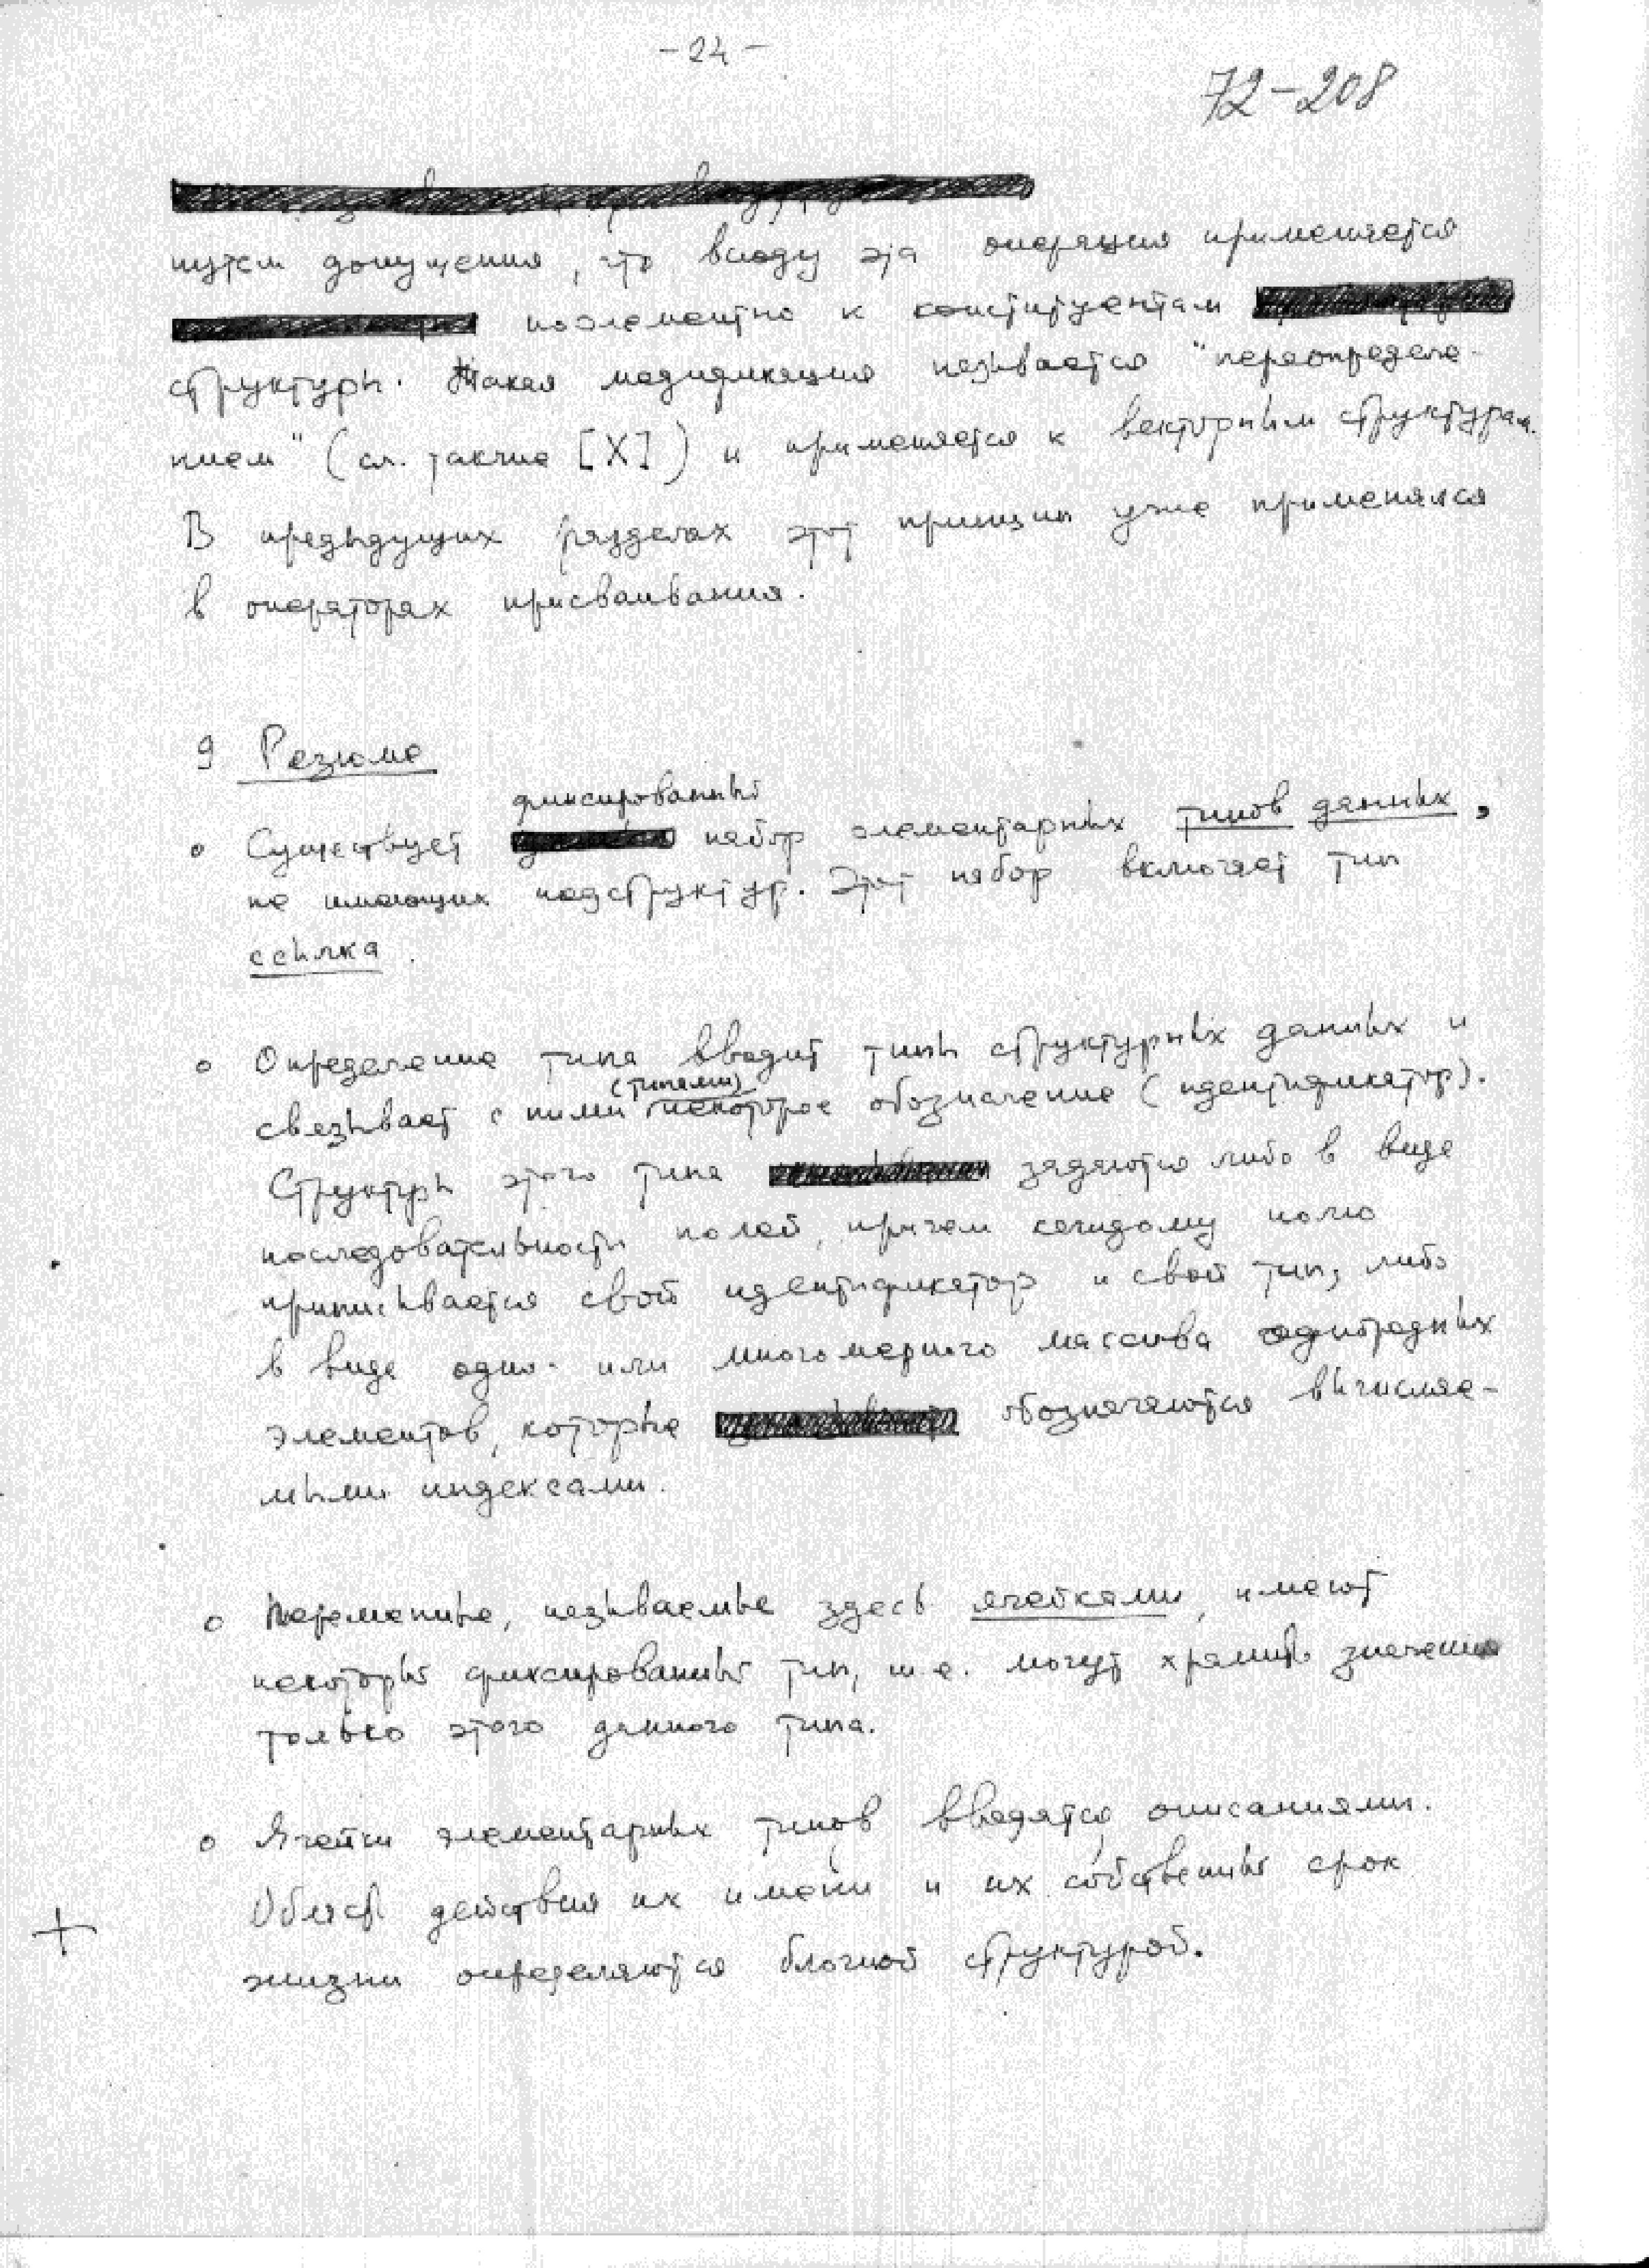 - 24 -
72-208
путем допущения, что всюду эта операция применяется
поэлементно к конституентам
структуры. Такая модификация называется "переопределе-
нием" (см. также [X]) и применяется к векторным структурам.
В предыдущих разделах этот принцип уже применялся
в операторах присваивания.
9 Резюме
фиксированный
о Существует набор элементарных типов данных,
не имеющих подструктур. Этот набор включает тип
ссылка.
о Определение типа вводит типы структурных данных и
(типами)
связывает с ними некоторое обозначение (идентификатор).
Структуры этого типа задаются либо в виде
последовательности полей, причем каждому полю
приписывается свой идентификатор и свой тип, либо
в виде одно- или многомерного массива однородных
элементов, которые обозначаются вычисляе-
мыми индексами.
о Переменные, называемые здесь ячейками, имеют
некоторый фиксированный тип, т.е. могут хранить значения
только этого данного типа.
о Ячейки элементарных типов вводятся описаниями.
Область действия их имени и их собственный срок
жизни определяются блочной структурой.